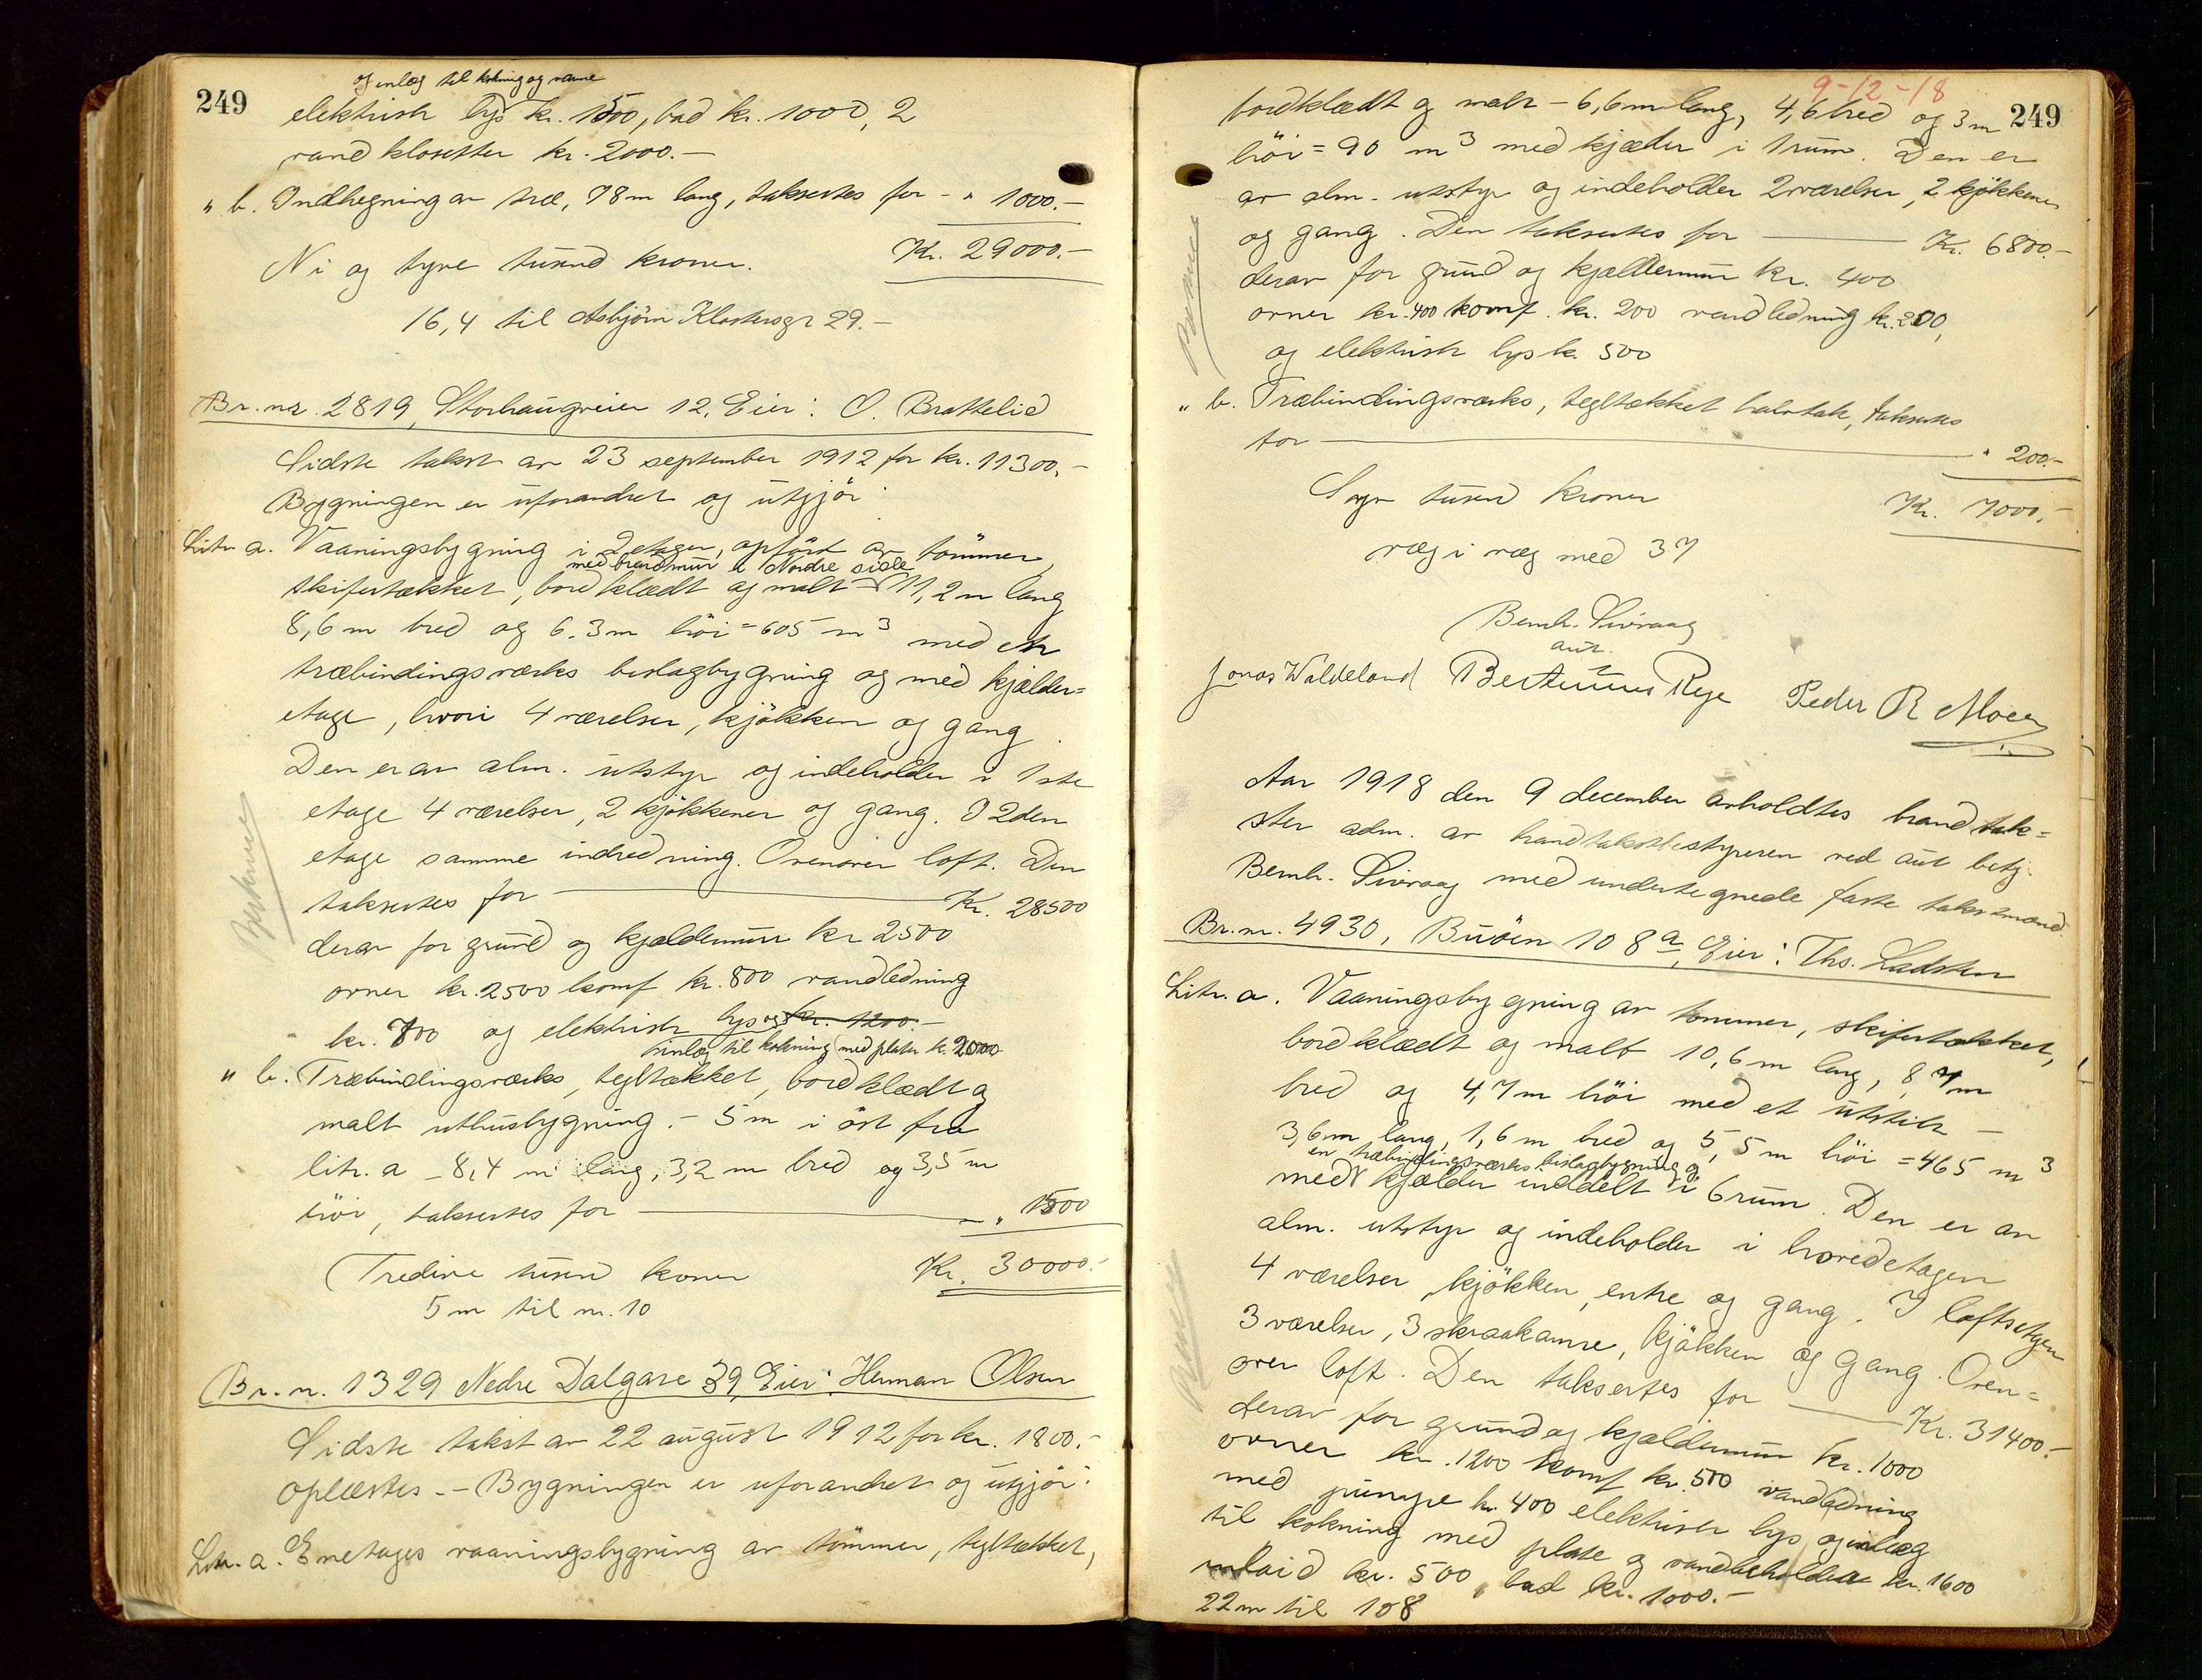 249
og inlæg til kokning og varme
elektrisk lys kr. 1500, bad kr. 1000, 2
vandklosetter kr. 2000.-
" b. Indhegning av træ, 78m lang, taksertes for - " 1000.-
Ni og tyve tusend kroner. Kr. 29000.-
16,4 til Asbjørn Klostersgt 29.-
Br. nr. 2819, Storhaugveien 12, Eier: O. Brattelid
Sidste takst av 23 september 1912 for kr. 11300.-
Bygningen er uforandret og utgjör:
Litr. a. Vaaningsbygning i 2 etager, opfört av tömmer,
med brandmur i Nordre side
skifertækket, bordklædt og malt - 11,2 m lang
8,6 m bred og 6.3m höi = 605 m3 med en
træbindingsværks bislagbygning og med kjælder=
etage, hvori 4 værelser, kjökken og gang.
Den er av alm. utstyr og indeholder i 1ste
etage 4 værelser, 2 kjökkener og gang. I 2den
etage samme indredning. Ovenover loft. Den
taksertes for Kr. 28500
derav for grund og kjældermur kr 2500
ovner kr. 2500 komf kr. 800 vandledning
kr. 700 og elektrisk lys og kr. 1200.-
inlæg til kokning med plater kr. 2000
" b. Træbindingsværks, tegltækket, bordklædt og
malt uthusbygning. - 5m i öst fra
litr. a - 8,4 m lang, 3,2 m bred og 3,5 m
höi, taksertes for - " 1500
Tredive tusend kroner Kr. 30000.-
5 m til nr. 10
Br. nr. 1329 Nedre Dalgare 39, Eier: Herman Olsen
Sidste takst av 22 august 1912 for kr. 1800.-
oplæstes. - Bygningen er uforandret og utgjör:
Litr. a. Enetages vaaningsbygning av tömmer, tegltækket,
9-12-18
249
bordklædt og malt - 6,6m lang, 4,6 bred og 3 m
höi = 90 m3 med kjælder i 1 rum. Den er
av alm. utstyr og indeholder 2 værelser, 2 kjökkener
og gang. Den taksertes for Kr. 6800.-
derav for grund og kjældermur kr. 400
ovner kr. 400 komf. kr. 200 vandledning kr. 200,
og elektrisk lys k. 500
" b. Træbindingsværks, tegltækket halvtak, taksertes
for " 200.-
Syv tusend kroner Kr. 7000.-
væg i væg med 37
Bernh. Sivraag
aut.
Jonas Waldeland Bertinius Rege Peder R Moen
Aar 1918 den 9 december avholdtes brandtak=
ster adm. av brandtakstbestyreren ved aut betj.
Bernh. Sivraag med undertegnede faste takstmænd.
Br. nr. 4930, Buöen 108 a, Eier: Ths. Ladsten
Litr. a. Vaaningsbygning av tömmer, skifertækket,
bordklædt og malt 10,6 m lang, 8,7 m
bred og 4,7m höi med et utstik -
3,6m lang, 1,6 m bred og 5,5 m höi = 465 m3
en træbindingsværks bislagbygning og
med kjælder inddelt i 6 rum. Den er av
alm. utstyr og indeholder i hovedetagen
4 værelser, kjökken, entre og gang. I loftsetagen
3 værelser, 3 skraakamre, kjökken og gang. Oven=
over loft. Den taksertes for Kr. 31400.-
derav for grund og kjældermur kr. 1000
ovner kr. 1200 komf kr. 500 vandledning
med pumpe kr. 400 elektrisk lys og inlæg
til kokning med plate og vandbeholder kr. 1600
inlaid kr. 500, bad kr. 1000.-
22m til 108